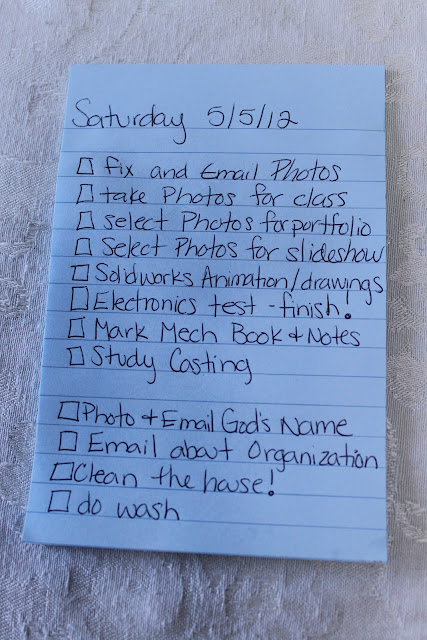 Saturday 5/5/12
fix and Email Photos
take Photos for class
select Photos for portfolio
Select Photos for slideshow
Solidworks Animation/drawings
Electronics test - finish!
Mark Mech Book + Notes
Study Casting
Photo + Email God's Name
Email about Organization
Clean the house!
do wash